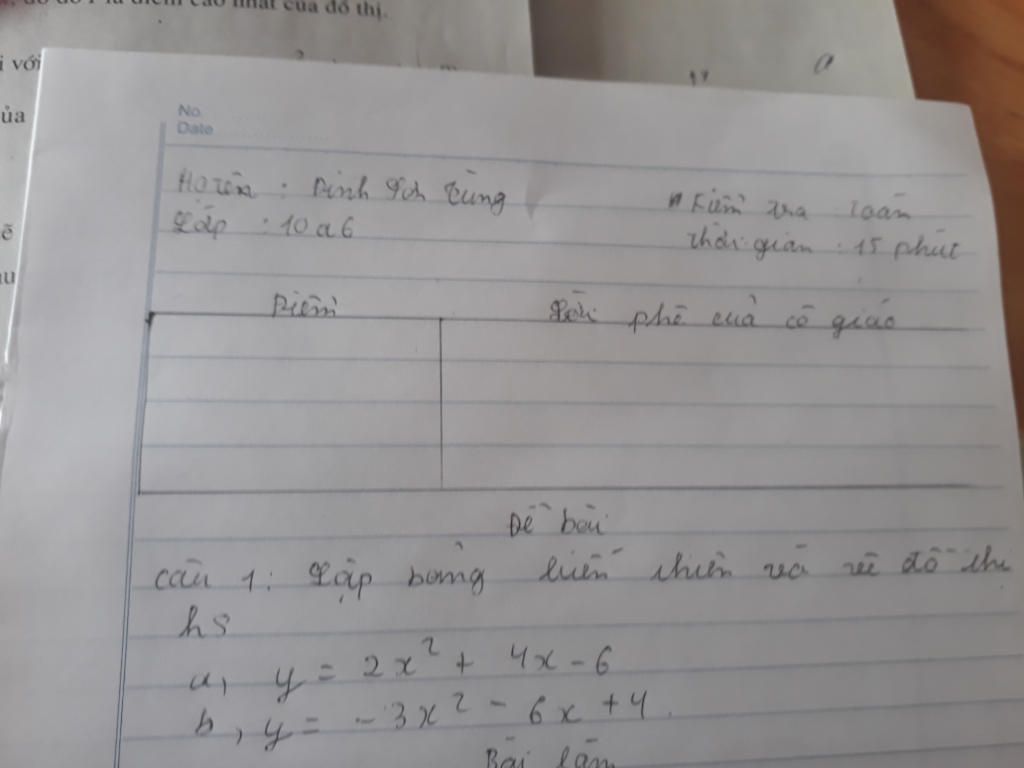 là điểm cao nhất của đồ thị.
i với
ủa
No.
Date
Họ tên : Đinh Sơn Tùng
Kiểm tra toán
Lớp : 10a6
Thời gian : 15 phút
Điểm
Lời phê của cô giáo
Đề bài
Câu 1: Lập bảng biến thiên và vẽ đồ thị
hs
a, y = 2x² + 4x - 6
b, y = -3x² - 6x + 4.
Bài làm